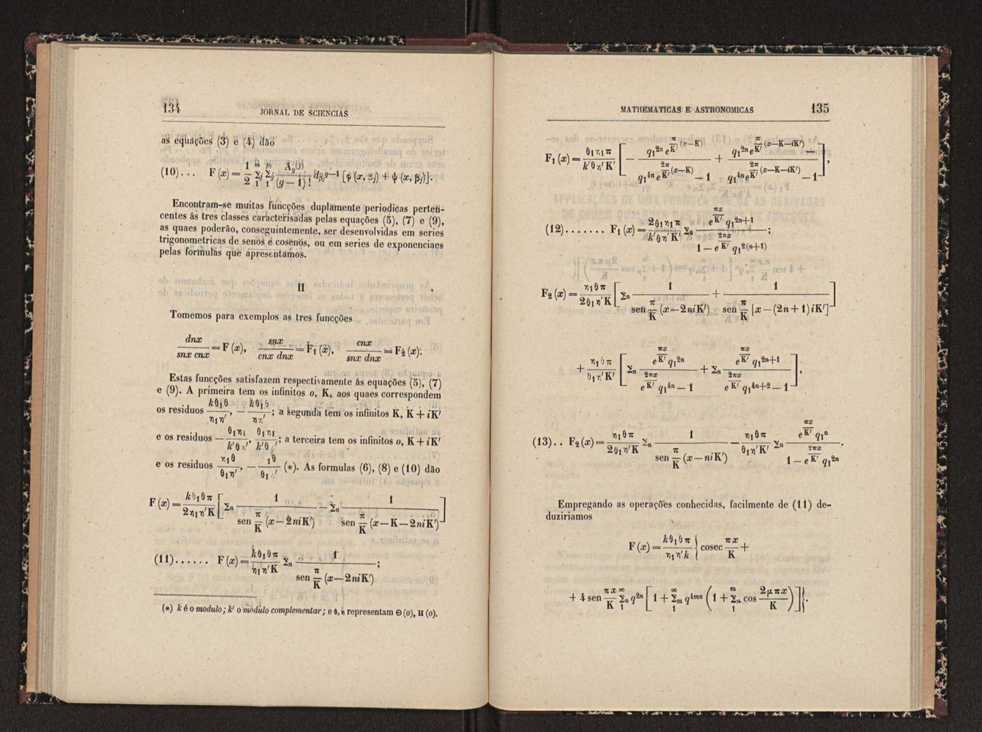 134
JORNAL DE SCIENCIAS
as equações (3) e (4) dão
(10)... F (x) = 1/2 Σj Σj Ag(j)/(g—1)! dg,x g—1 [φ (x, αj) + ψ (x, βj)].
Encontram-se muitas funcções duplamente periodicas perten-
centes ás tres classes caracterisadas pelas equações (5), (7) e (9),
as quaes poderão, conseguintemente, ser desenvolvidas em series
trigonometricas de senos e cosenos, ou em series de exponenciaes
pelas formulas que apresentámos.
II
Tomemos para exemplos as tres funcções
dnx/snx cnx = F (x), snx/cnx dnx = F₁ (x), cnx/snx dnx = F₂ (x).
Estas funcções satisfazem respectivamente ás equações (5), (7)
e (9). A primeira tem os infinitos o, K, aos quaes correspondem
os residuos kθ₁θ/η₁η′, — kθ₁θ/η₁η′; a segunda tem os infinitos K, K + iK′
e os residuos — θ₁η₁/k′θη′, θ₁η₁/k′θη′; a terceira tem os infinitos o, K + iK′
e os residuos η₁θ/θ₁η′, — η₁θ/θ₁η′ (*). As formulas (6), (8) e (10) dão
F (x) = kθ₁θπ/2η₁η′K [Σn 1/sen π/K (x — 2niK′) — Σn 1/sen π/K (x — K — 2niK′)]
(11)...... F (x) = kθ₁θπ/η₁η′K Σn 1/sen π/K (x — 2niK′);
(*) k é o modulo; k′ o modulo complementar; e θ, η representam Θ (o), H (o).
MATHEMATICAS E ASTRONOMICAS
135
F₁ (x) = θ₁η₁π/k′θη′K′ [— q₁^2n e^(π/K′ (x—K))/q₁^4n e^(2π/K′ (x—K)) — 1 + q₁^2n e^(π/K′ (x—K—iK′))/q₁^4n e^(2π/K′ (x—K—iK′)) — 1],
(12)....... F₁ (x) = 2θ₁η₁π/k′θη′K′ Σn e^(πx/K′) q₁^(2n+1)/1 — e^(2πx/K′) q₁^2(n+1);
F₂ (x) = η₁θπ/2θ₁η′K [Σn 1/sen π/K (x — 2niK′) + 1/sen π/K [x — (2n + 1) iK′]]
+ η₁θπ/θ₁η′K′ [Σn e^(πx/K′) q₁^2n/e^(2πx/K′) q₁^4n — 1 + Σn e^(πx/K′) q₁^(2n+1)/e^(2πx/K′) q₁^(4n+2) — 1],
(13).. F₂ (x) = η₁θπ/2θ₁η′K Σn 1/sen π/K (x — niK′) — η₁θπ/θ₁η′K′ Σn e^(πx/K′) q₁^n/1 — e^(2πx/K′) q₁^2n.
Empregando as operações conhecidas, facilmente de (11) de-
duziriamos
F (x) = kθ₁θπ/η₁η′k {cosec πx/K +
+ 4 sen πx/K Σn q^2n [1 + Σm q^4mn (1 + Σn cos 2μπx/K)]}.